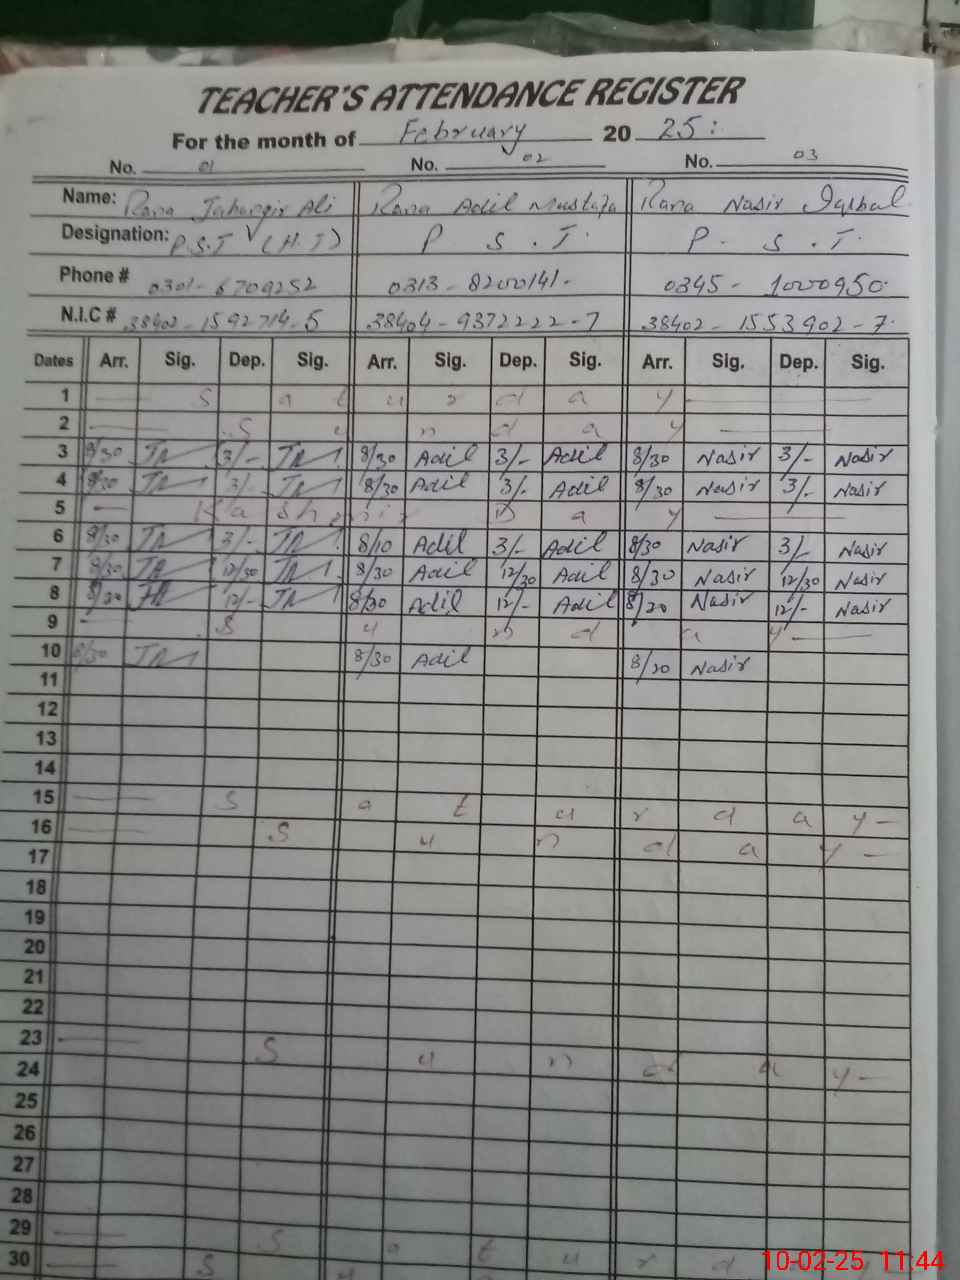 TEACHER'S ATTENDANCE REGISTER
For the month of February 20 25:
No. 01 No. 02 No. 03
Name: Rana Jahangir Ali Rana Adil Mustafa Rana Nasir Iqbal
Designation: P.S.T (H.T) P.S.T. P.S.T.
Phone # 0301-6709252 0313-8200141- 0345-1000950
N.I.C # 38402-1592714-5 38404-9372222-7 38402-1553902-7
Dates Arr. Sig. Dep. Sig. Arr. Sig. Dep. Sig. Arr. Sig. Dep. Sig.
1 Saturday
2 Sunday
3 8/30 3/- 8/30 Adil 3/- Adil 8/30 Nasir 3/- Nasir
4 8/30 3/- 8/30 Adil 3/- Adil 8/30 Nasir 3/- Nasir
5 Kashmir Day
6 8/30 3/- 8/10 Adil 3/- Adil 8/30 Nasir 3/- Nasir
7 8/30 12/30 8/30 Adil 12/30 Adil 8/30 Nasir 12/30 Nasir
8 8/30 12/- 8/30 Adil 12/- Adil 8/20 Nasir 12/- Nasir
9 Sunday
10 8/30 8/30 Adil 8/20 Nasir
11
12
13
14
15 Saturday
16 Sunday
17
18
19
20
21
22
23 Sunday
24
25
26
27
28
29 Satur
30 S
10-02-25 11:44